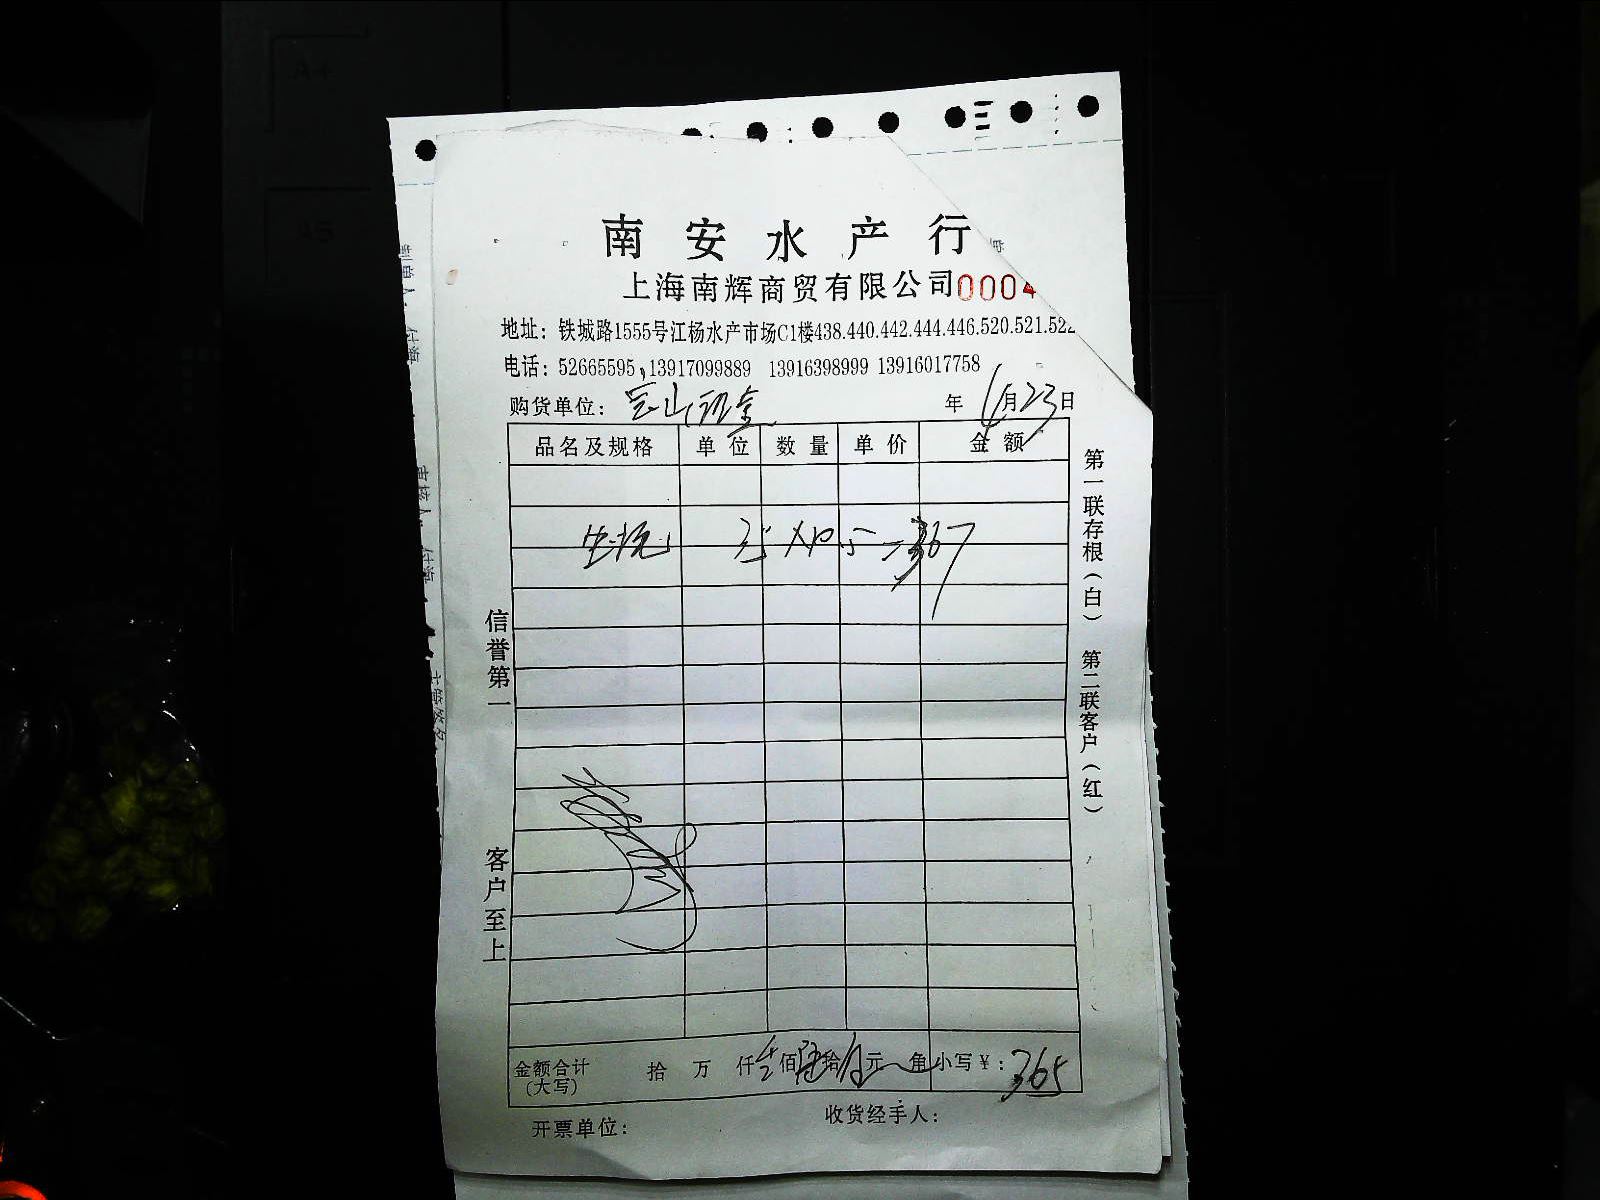 南安水产行
上海南辉商贸有限公司 0004
地址：铁城路1555号江杨水产市场C1楼438.440.442.444.446.520.521.522
电话：52665595，13917099889 13916398999 13916017758
购货单位：宝山 年 6月23日
品名及规格 单位 数量 单价 金额
367
信誉第一
客户至上
第一联存根（白） 第二联客户（红）
金额合计（大写） 拾 万 仟 佰 拾 元 角 小写￥：365
开票单位：
收货经手人：